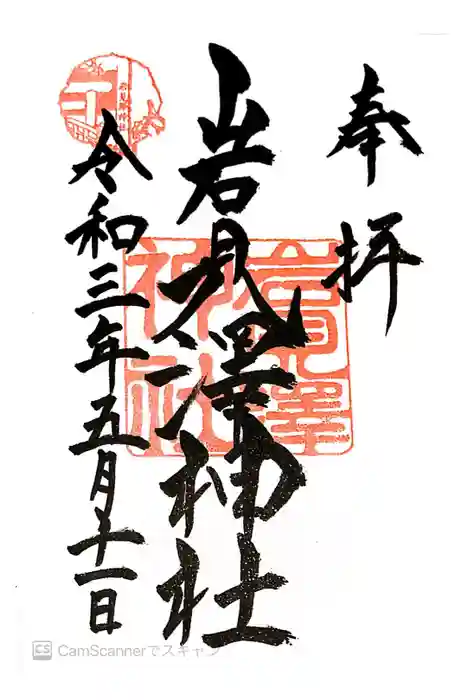 奉拝
岩見澤神社
令和三年五月十一日
岩見澤神社
CS CamScannerでスキャン